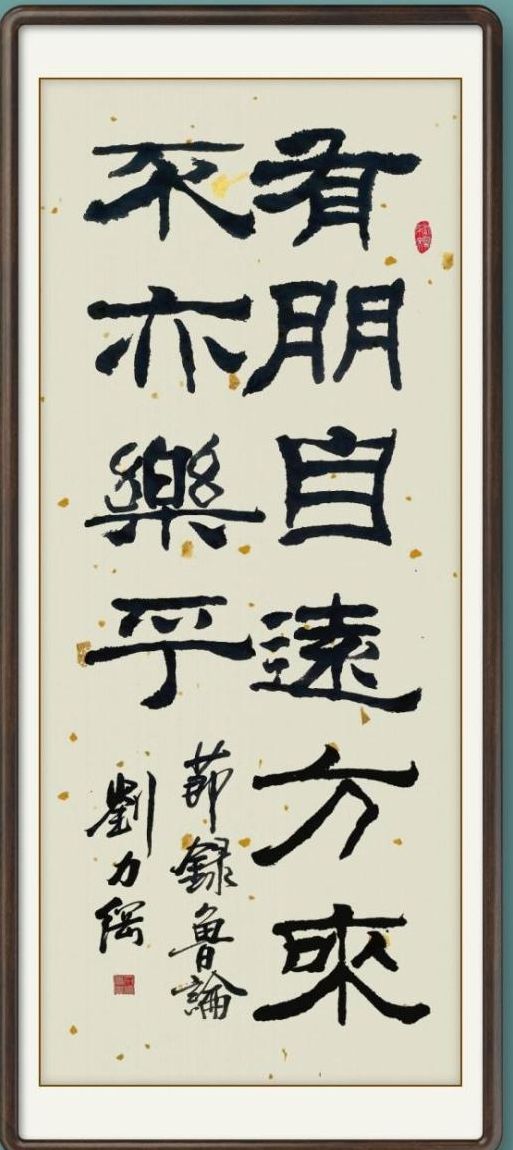 有朋自遠方來
不亦樂乎
節録魯論
劉力綱